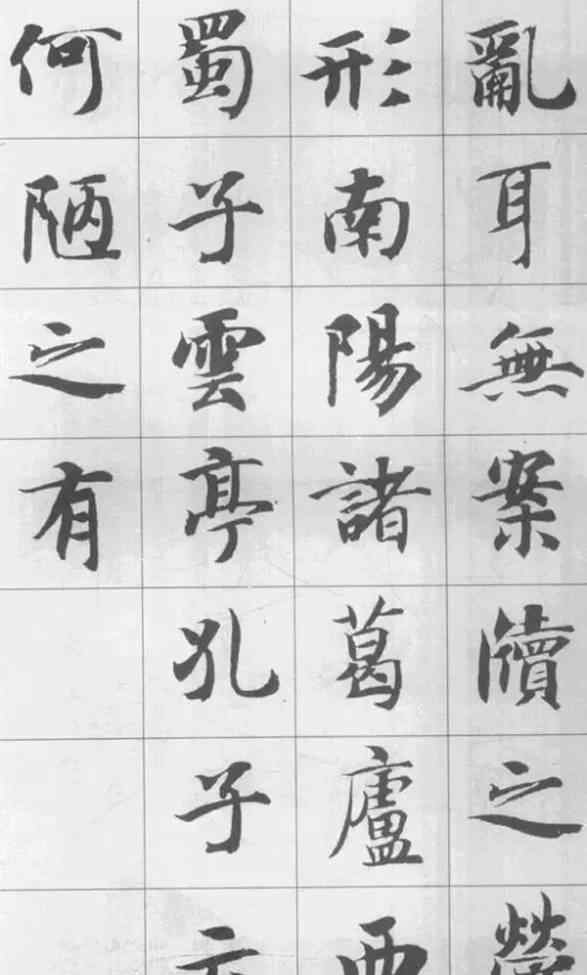 亂耳無案牘之
形南陽諸葛廬西
蜀子雲亭孔子云
何陋之有